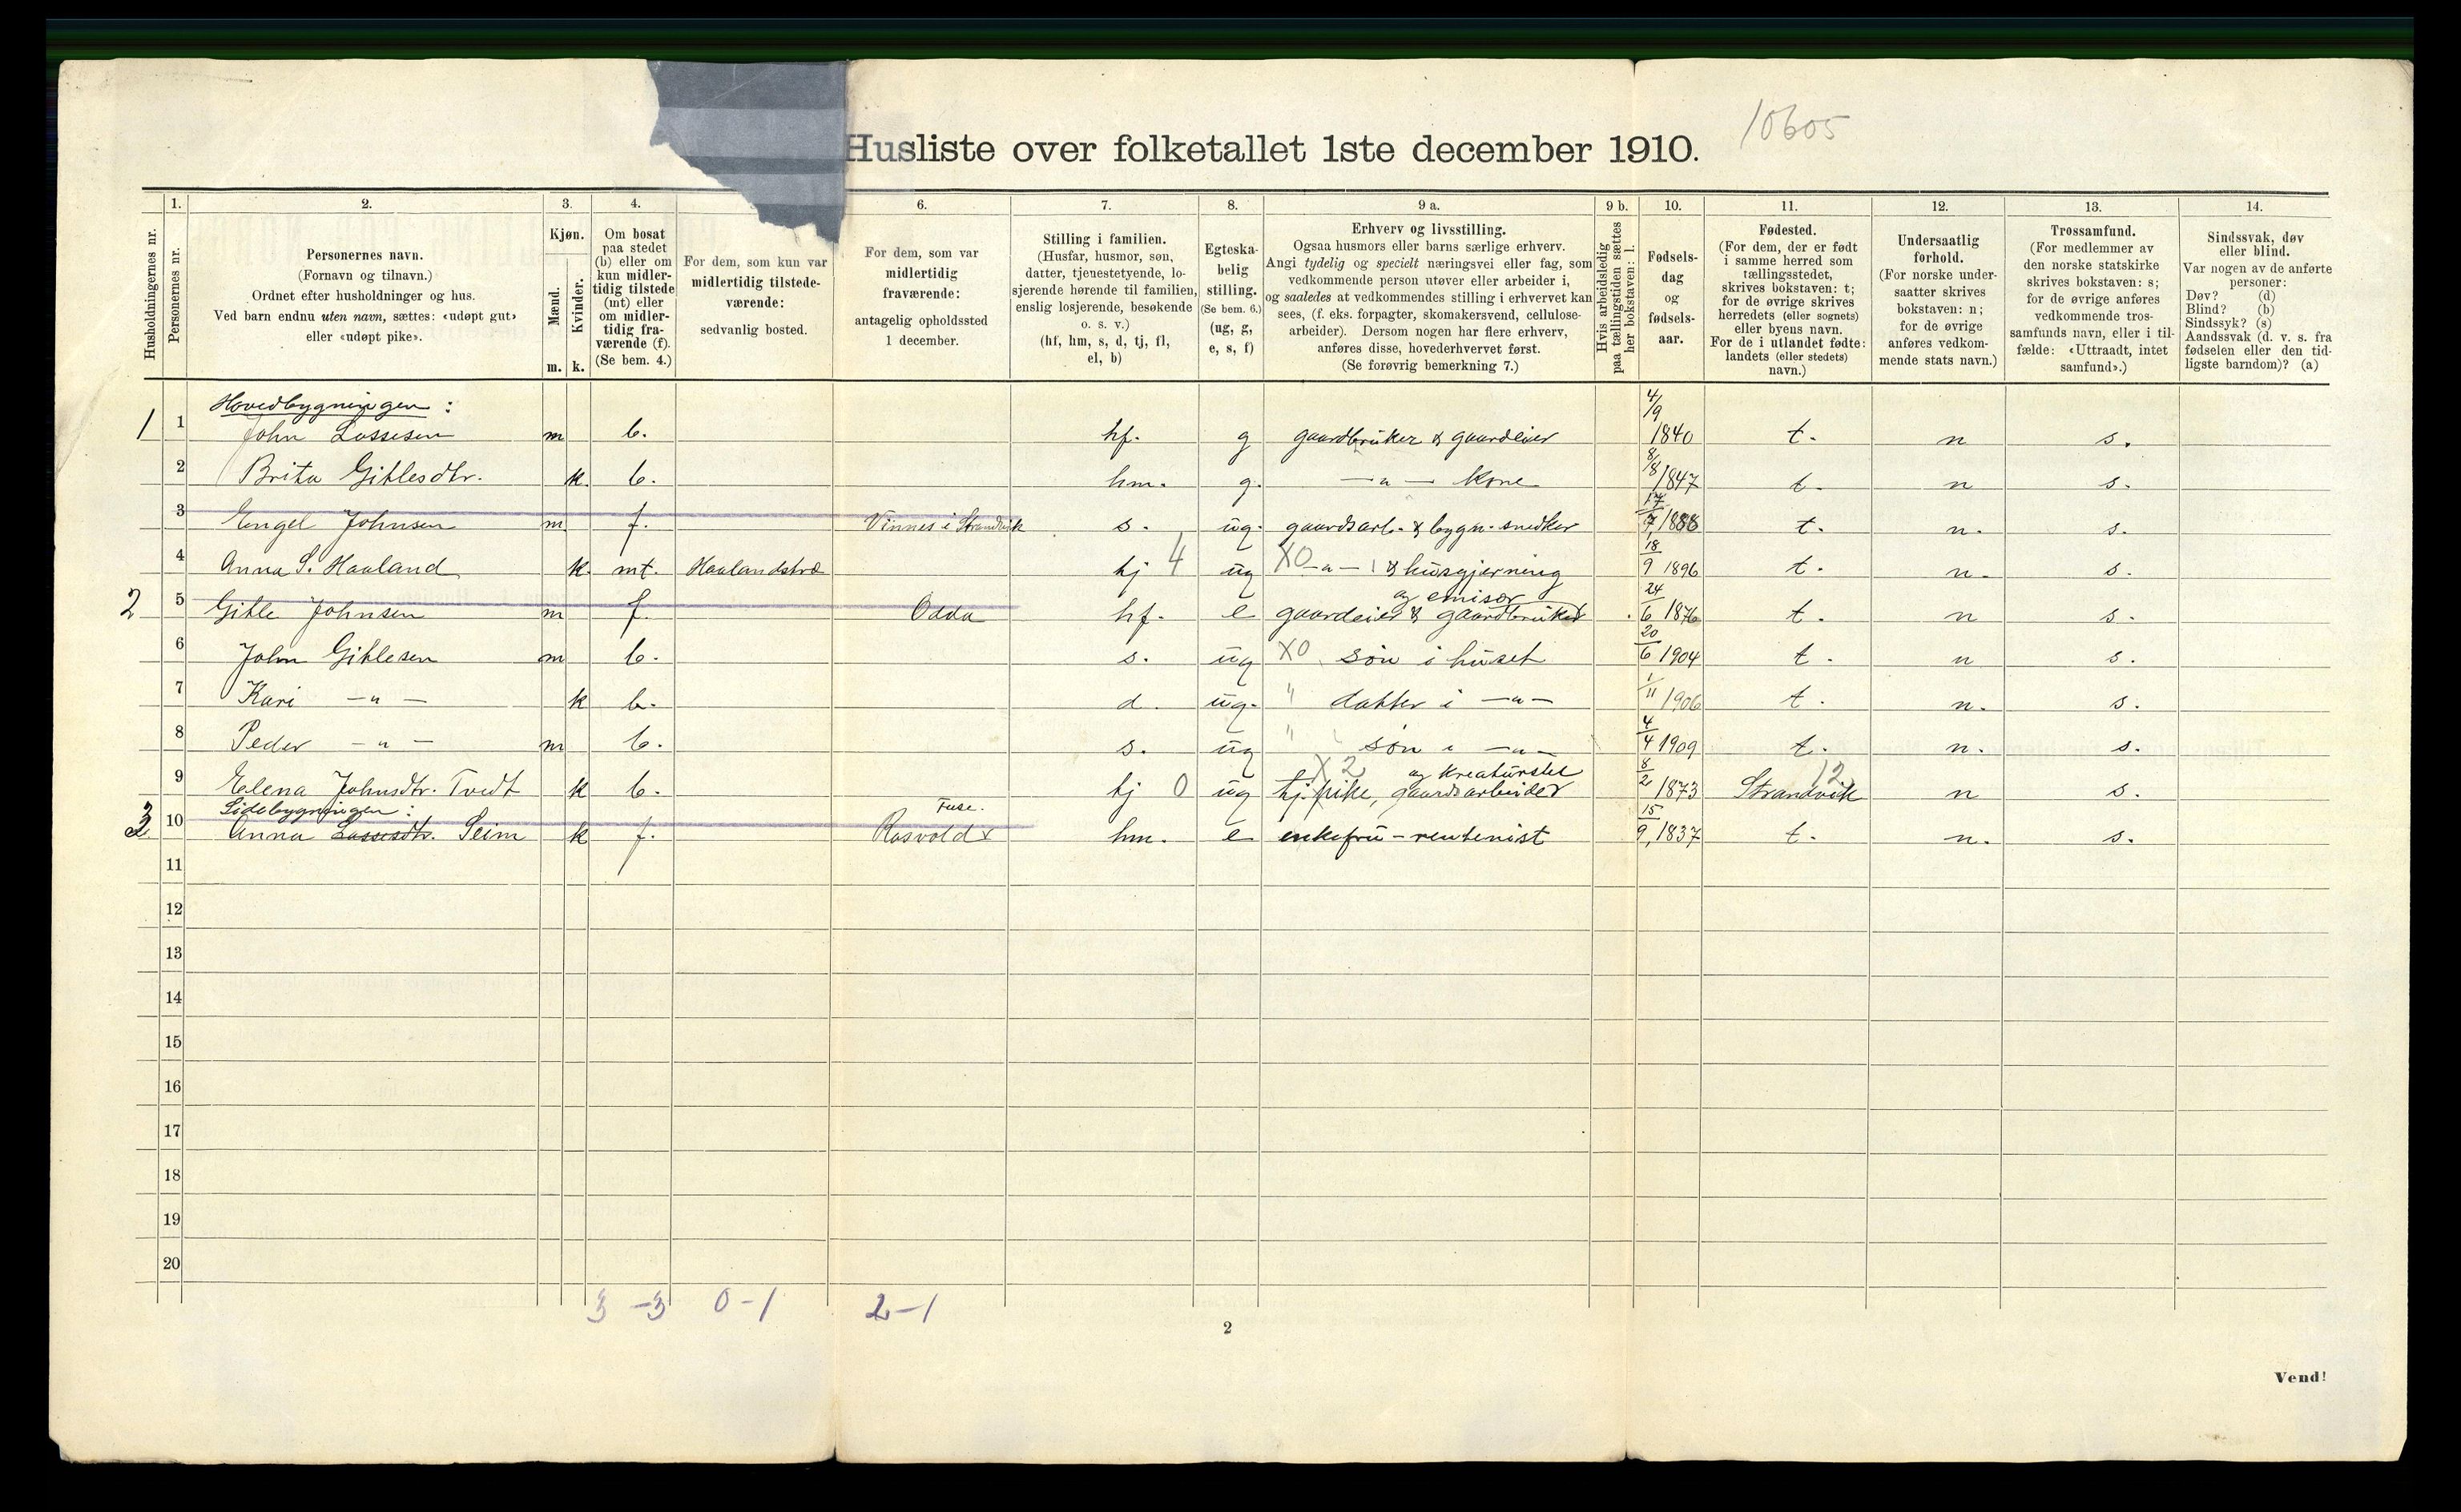 Husliste over folketallet 1ste december 1910.
10605
1. 2. 3. 4. 6. 7. 8. 9 a. 9 b. 10. 11. 12. 13. 14.
Husholdningernes nr.
Personernes nr.
Personernes navn.
(Fornavn og tilnavn.)
Ordnet efter husholdninger og hus.
Ved barn endnu uten navn, sættes: «udøpt gut»
eller «udøpt pike».
Kjøn.
Mænd.
Kvinder.
m. k.
Om bosat
paa stedet
(b) eller om
kun midler-
tidig tilstede
(mt) eller
om midler-
tidig fra-
værende (f).
(Se bem. 4.)
For dem, som kun var
midlertidig tilstede-
værende:
sedvanlig bosted.
For dem, som var
midlertidig
fraværende:
antagelig opholdssted
1 december.
Stilling i familien.
(Husfar, husmor, søn,
datter, tjenestetyende, lo-
sjerende hørende til familien,
enslig losjerende, besøkende
o. s. v.)
(hf, hm, s, d, tj, fl,
el, b)
Egteska-
belig
stilling.
(Se bem. 6.)
(ug, g,
e, s, f)
Erhverv og livsstilling.
Ogsaa husmors eller barns særlige erhverv.
Angi tydelig og specielt næringsvei eller fag, som
vedkommende person utøver eller arbeider i,
og saaledes at vedkommendes stilling i erhvervet kan
sees, (f. eks. forpagter, skomakersvend, cellulose-
arbeider). Dersom nogen har flere erhverv,
anføres disse, hovederhvervet først.
(Se forøvrig bemerkning 7.)
Hvis arbeidsledig
paa tællingstiden sættes
her bokstaven: l.
Fødsels-
dag
og
fødsels-
aar.
Fødested.
(For dem, der er født
i samme herred som
tællingsstedet,
skrives bokstaven: t;
for de øvrige skrives
herredets (eller sognets)
eller byens navn.
For de i utlandet fødte:
landets (eller stedets)
navn.)
Undersaatlig
forhold.
(For norske under-
saatter skrives
bokstaven: n;
for de øvrige
anføres vedkom-
mende stats navn.)
Trossamfund.
(For medlemmer av
den norske statskirke
skrives bokstaven: s;
for de øvrige anføres
vedkommende tros-
samfunds navn, eller i til-
fælde: «Uttraadt, intet
samfund».)
Sindssvak, døv
eller blind.
Var nogen av de anførte
personer:
Døv? (d)
Blind? (b)
Sindssyk? (s)
Aandssvak (d. v. s. fra
fødselen eller den tid-
ligste barndom)? (a)
Hovedbygningen:
1 1 John Lassesen m b. hf. g gaardbruker & gaardeier 4/9 1840 t. n s.
2 Brita Gitlesdtr. k. b. hm. g. —"— kone 8/8 1847 t. n s.
3 Engel Johnsen m f. Vinnes i Strandvik s. ug. gaardsarb. & bygn. snedker 17/7 1888 t. n. s.
4 Anna S. Haaland k. mt. Haalandstræ tj 4 ug X0 —"— & husgjerning 18/9 1896 t. n. s.
og emisær
2 5 Gitle Johnsen m f. Odda hf. e gaardeier & gaardbruker 24/6 1876 t. n s.
6 John Gitlesen m b. s. ug X0 søn i huset 20/6 1904 t. n s.
7 Kari —"— k b. d. ug. " datter i —"— 1/11 1906 t. n. s.
8 Peder —"— m b. s. ug " søn i —"— 4/4 1909 t. n. s.
X 2 og kreaturstel 12
9 Elena Johnsdtr. Tvedt k b. tj 0 ug tj. pike, gaardsarbeider 8/2 1873 Strandvik n s.
Sidebygningen: Fuse.
3 10 Anna Lassesdtr. Seim k f. Rosvold x hm. e enkefru - rentenist 15/9 1837 t. n. s.
11
12
13
14
15
16
17
18
19
20
3 -3 0-1 2-1
2
Vend!